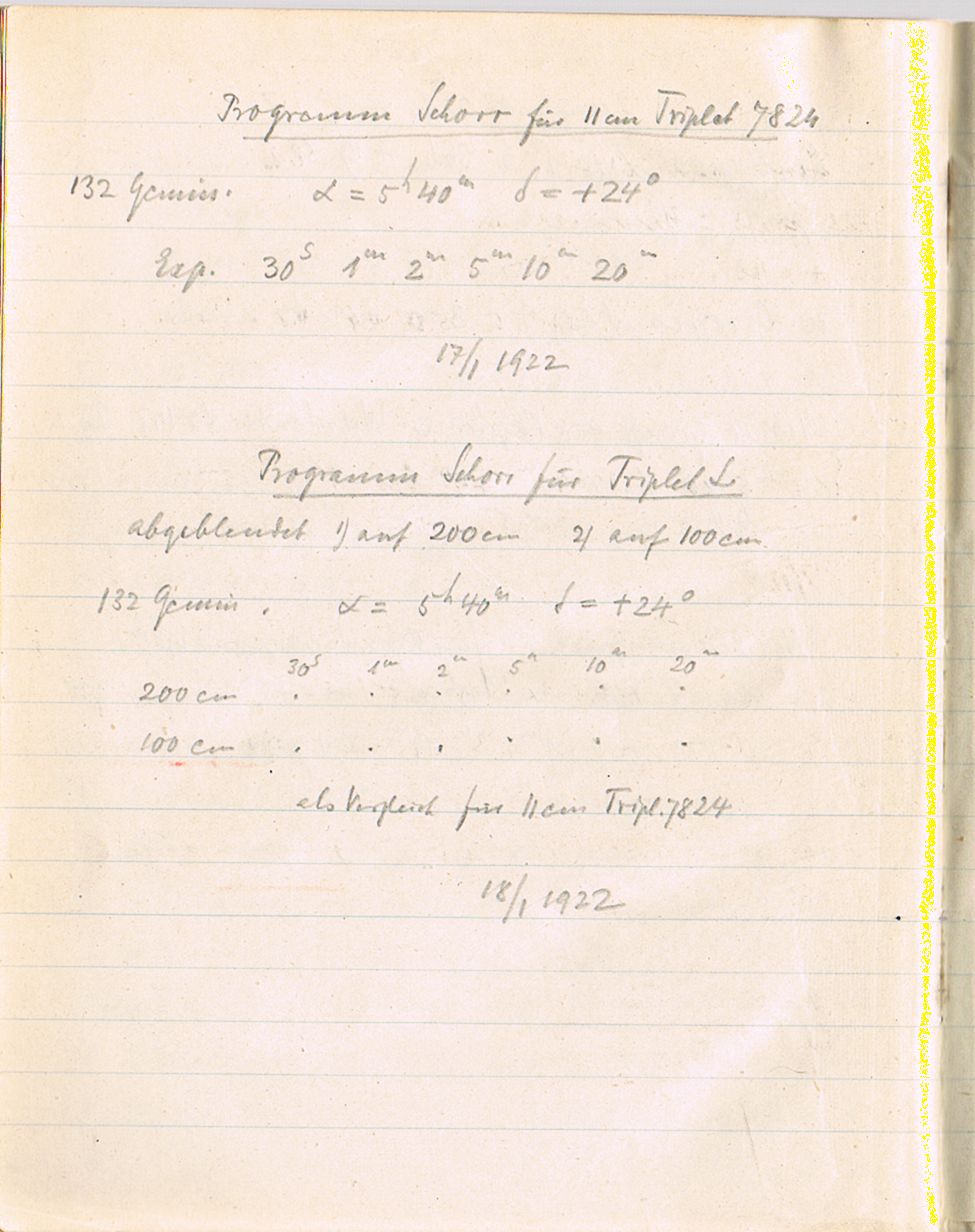 Programm Schorr für 11 cm Triplet 7824
132 Gemin. α = 5ʰ 40ᵐ δ = +24°
Exp. 30ˢ 1ᵐ 2ᵐ 5ᵐ 10ᵐ 20ᵐ
17/1 1922
Programm Schorr für Triplet
abgeblendet 1) auf 200 cm 2) auf 100 cm
132 Gemin. α = 5ʰ 40ᵐ δ = +24°
30ˢ 1ᵐ 2ᵐ 5ᵐ 10ᵐ 20ᵐ
200 cm . . . . . .
100 cm . . . . . .
als Vergleich für 11 cm Tripl. 7824
18/1 1922